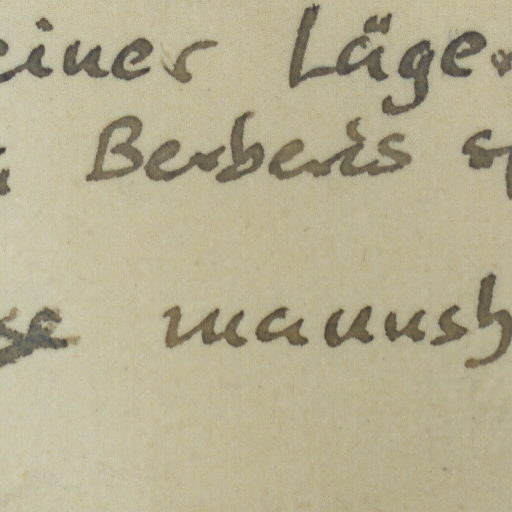 einer Läger
Berberis sp
mannsh